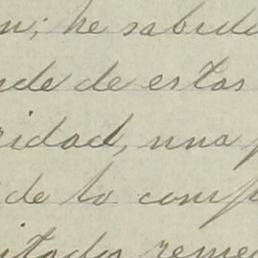 n; he sabid
de de estas
idad, una
de la comp
itados reme